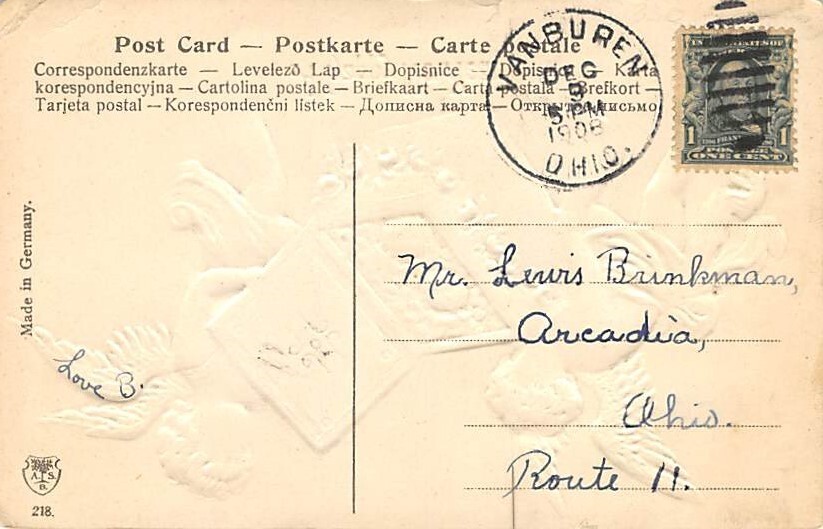 Post Card — Postkarte — Carte postale
Correspondenzkarte — Levelező Lap — Dopisnice — Dopisnica — Karta
korespondencyjna — Cartolina postale — Briefkaart — Carta postala — Brefkort —
Tarjeta postal — Korespondenční lístek — Дописна карта — Открытое письмо
VANBUREN
DEC
5 PM
1908
OHIO.
1 1
POSTAGE
ONE CENT
Made in Germany.
Mr. Lewis Brinkman,
Arcadia,
Ohio.
Route 11.
Love B.
A. S.
B.
218.